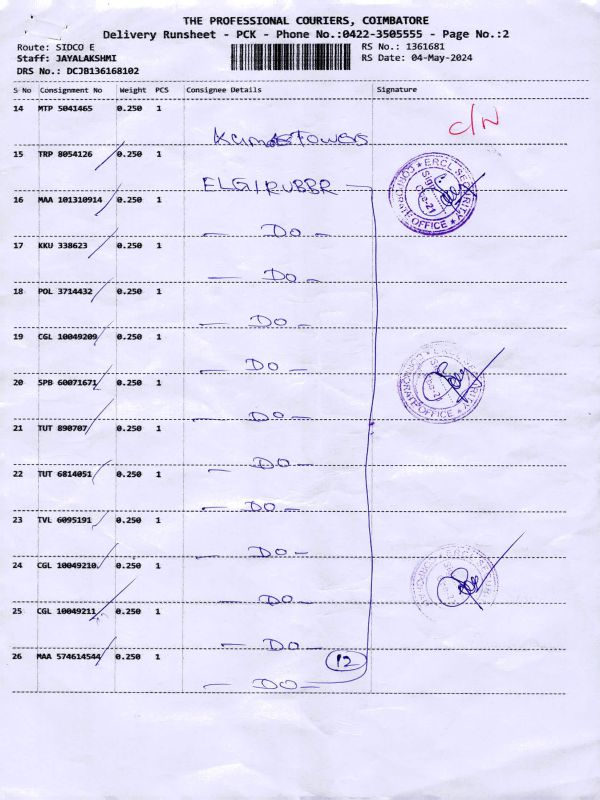 THE PROFESSIONAL COURIERS, COIMBATORE
Delivery Runsheet - PCK - Phone No.:0422-3505555 - Page No.:2
Route: SIDCO E
RS No.: 1361681
Staff: JAYALAKSHMI
RS Date: 04-May-2024
DRS No.: DCJB136168102
S No Consignment No Weight PCS Consignee Details Signature
14 MTP 5041465 0.250 1
C/N
Towers
15 TRP 8054126 0.250 1
ELGI RUBBR
16 MAA 101310914 0.250 1
- DO -
17 KKU 338623 0.250 1
- DO -
18 POL 3714432 0.250 1
- DO -
19 CGL 10049209 0.250 1
- DO -
20 SPB 60071671 0.250 1
- DO -
21 TUT 890707 0.250 1
- DO -
22 TUT 6814051 0.250 1
- DO -
23 TVL 6095191 0.250 1
- DO -
24 CGL 10049210 0.250 1
- DO -
25 CGL 10049211 0.250 1
- DO -
26 MAA 574614544 0.250 1
12
- DO -